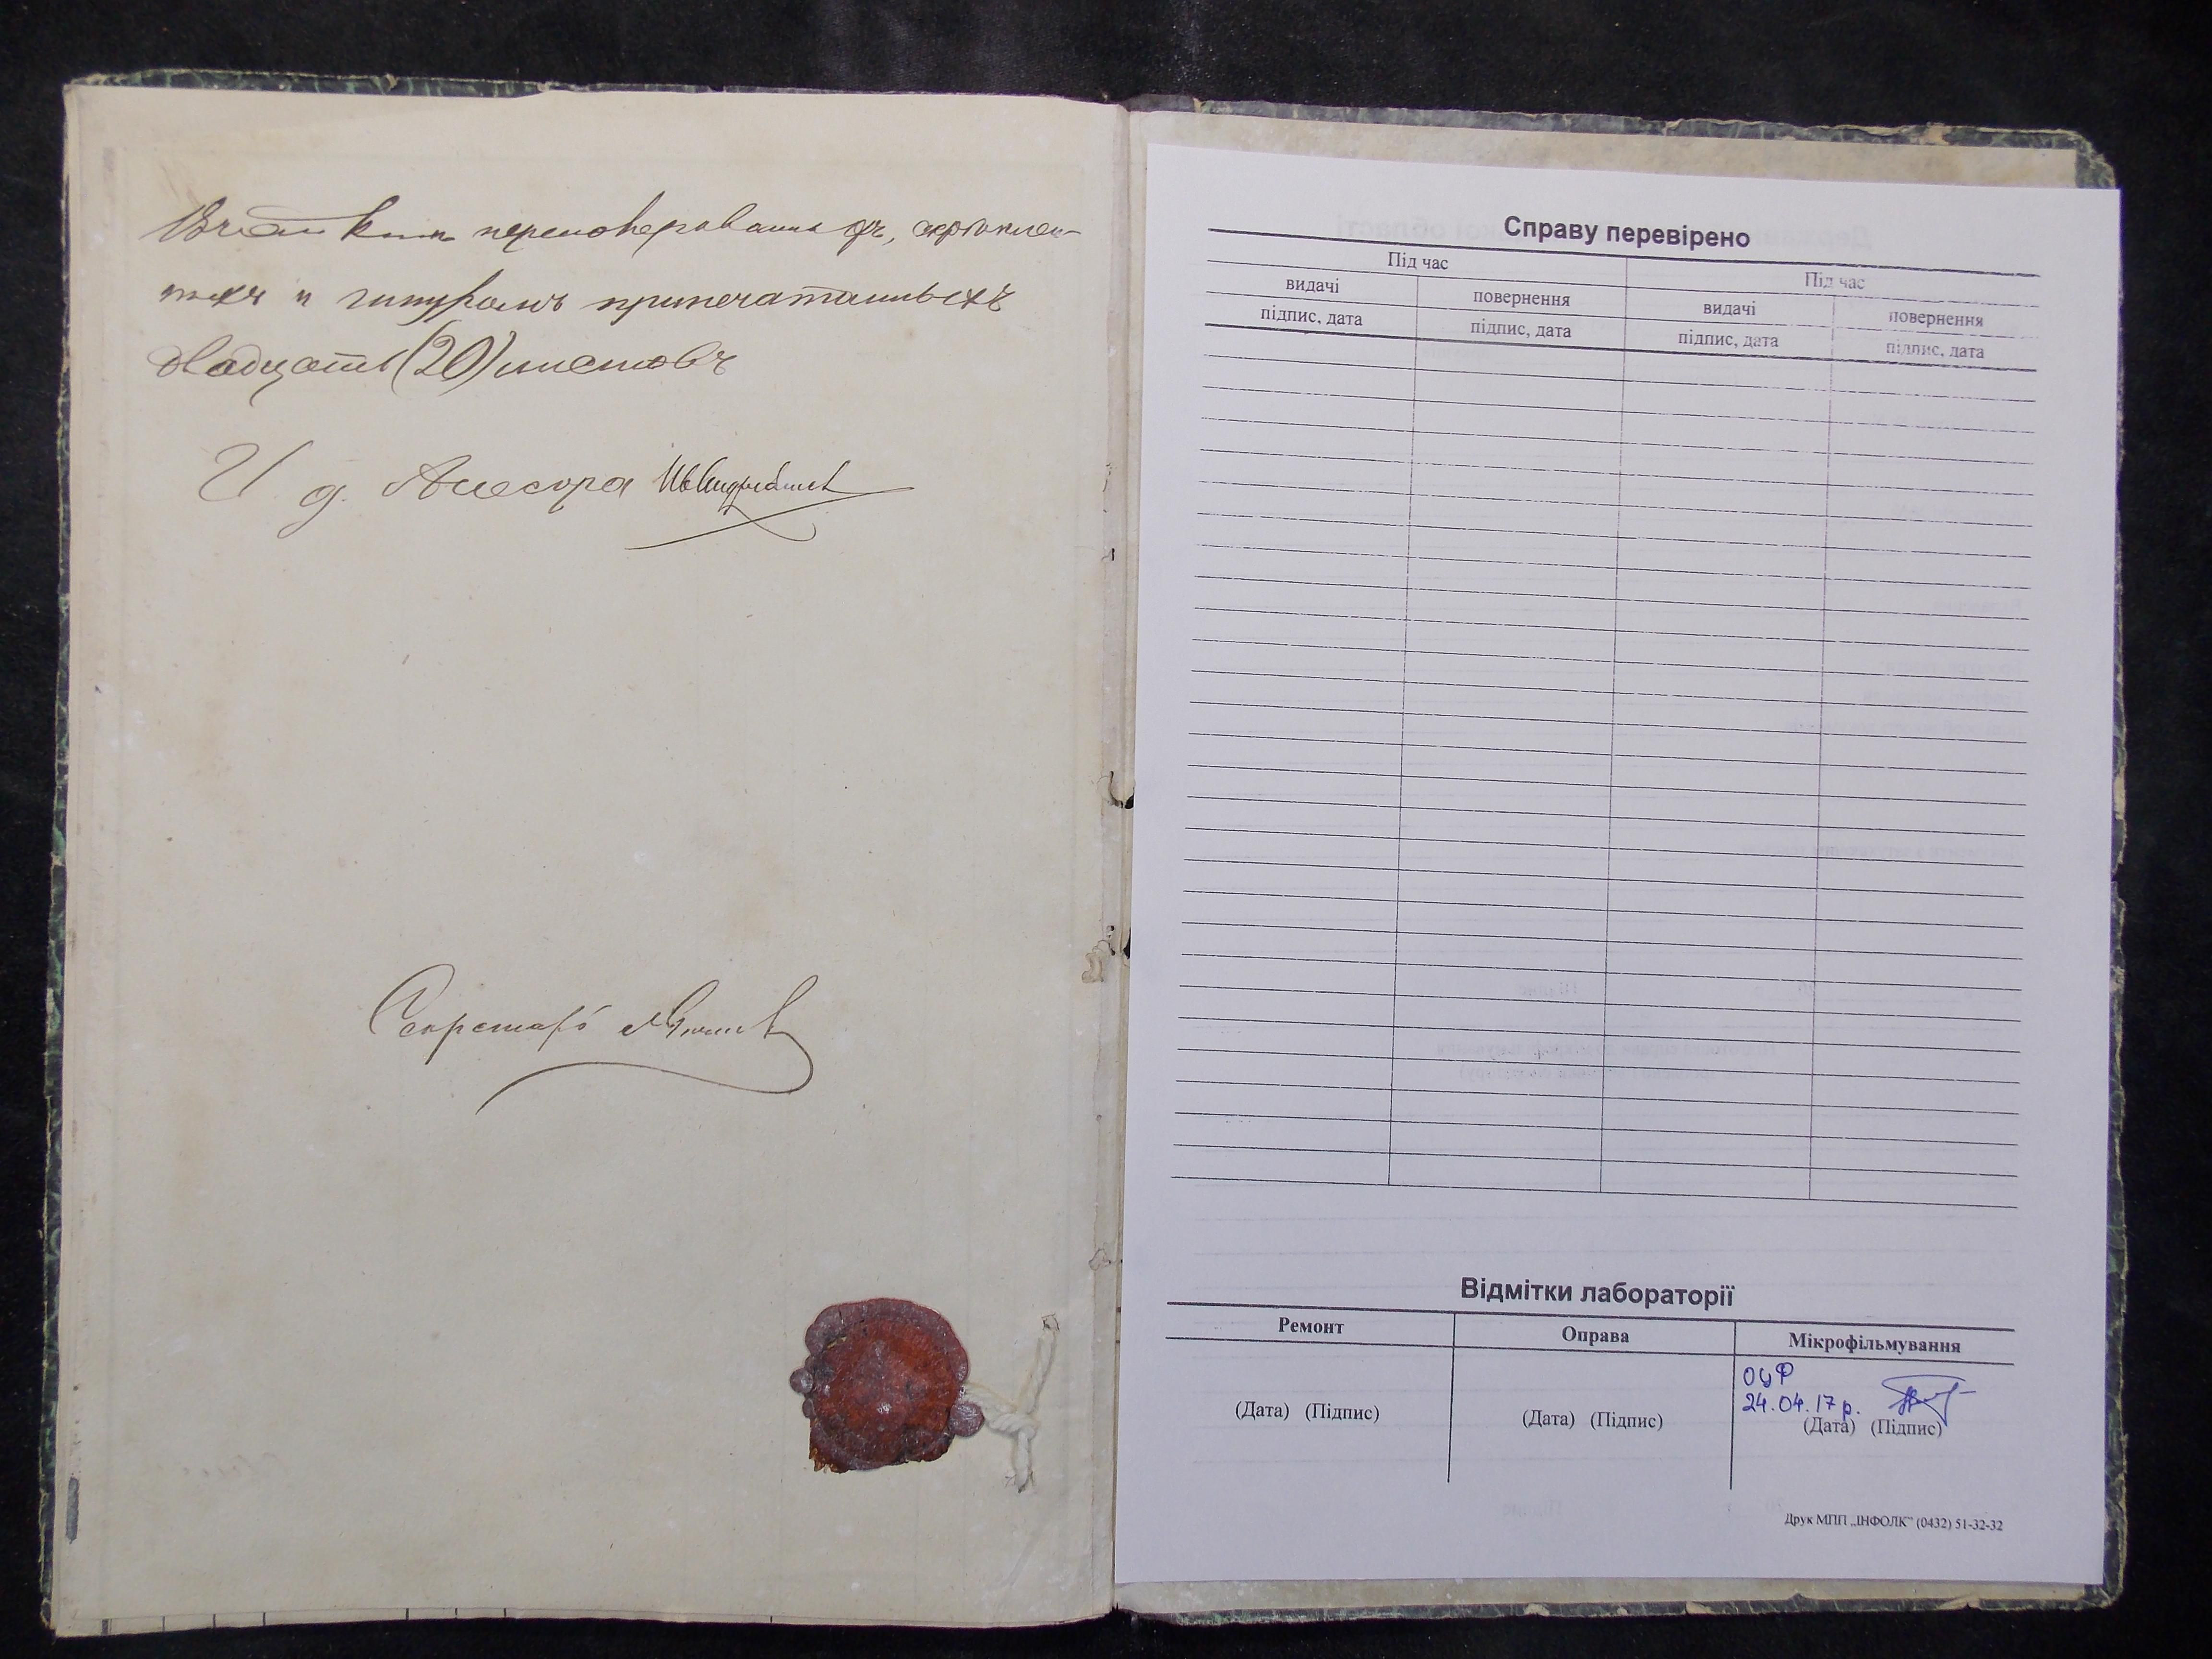 В этой книгѣ перенумерованныхъ, скрѣплен-
ныхъ и шнуромъ припечатанныхъ
двадцать (20) листовъ
И д. Асессора
Секретарь
Справу перевірено
Під час
Під час
видачі
повернення
видачі
повернення
підпис, дата
підпис, дата
підпис, дата
підпис, дата
Відмітки лабораторії
Ремонт
Оправа
Мікрофільмування
ОЦФ
24.04.17 р.
(Дата) (Підпис)
(Дата) (Підпис)
(Дата) (Підпис)
Друк МПП „ІНФОЛК” (0432) 51-32-32